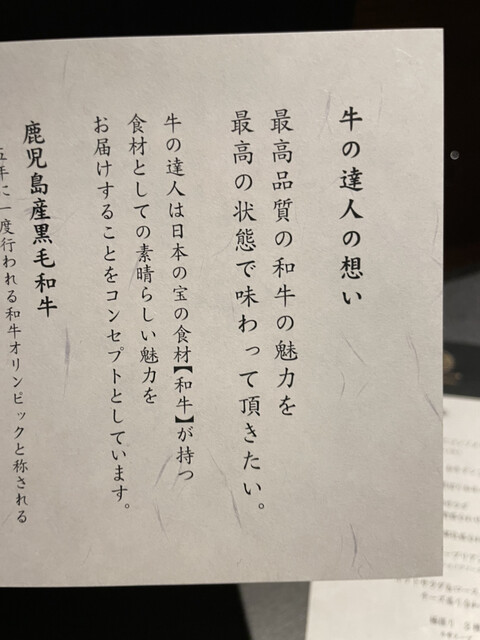 牛の達人の想い
最高品質の和牛の魅力を
最高の状態で味わって頂きたい。
牛の達人は日本の宝の食材【和牛】が持つ
食材としての素晴らしい魅力を
お届けすることをコンセプトとしています。
鹿児島産黒毛和牛
五年に一度行われる和牛オリンピックと称される